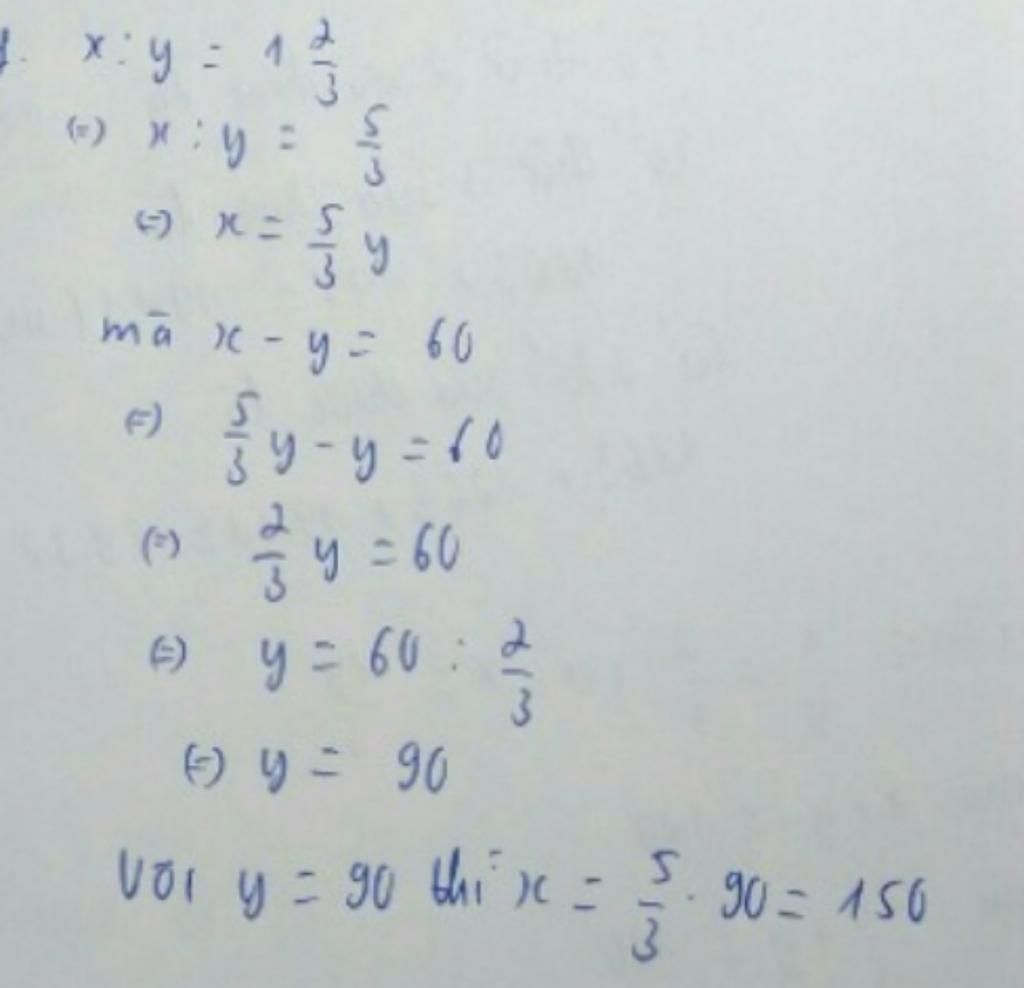 x : y = 1 2/3
(=) x : y = 5/3
(=) x = 5/3 y
mà x - y = 60
(=) 5/3 y - y = 60
(=) 2/3 y = 60
(=) y = 60 : 2/3
(=) y = 90
Với y = 90 thì x = 5/3 . 90 = 150